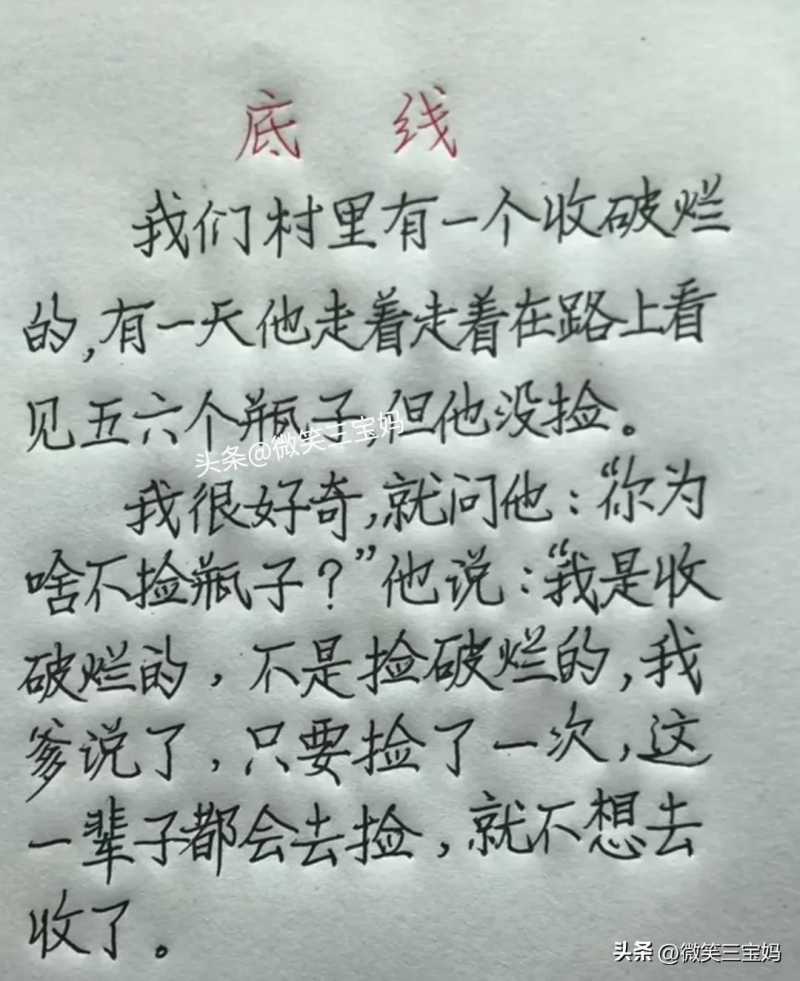 底线
我们村里有一个收破烂
的,有一天他走着走着在路上看
见五六个瓶子,但他没捡。
头条@微笑三宝妈
我很好奇,就问他:“你为
啥不捡瓶子?”他说:“我是收
破烂的,不是捡破烂的,我
爹说了,只要捡了一次,这
一辈子都会去捡,就不想去
收了。
头条 @微笑三宝妈